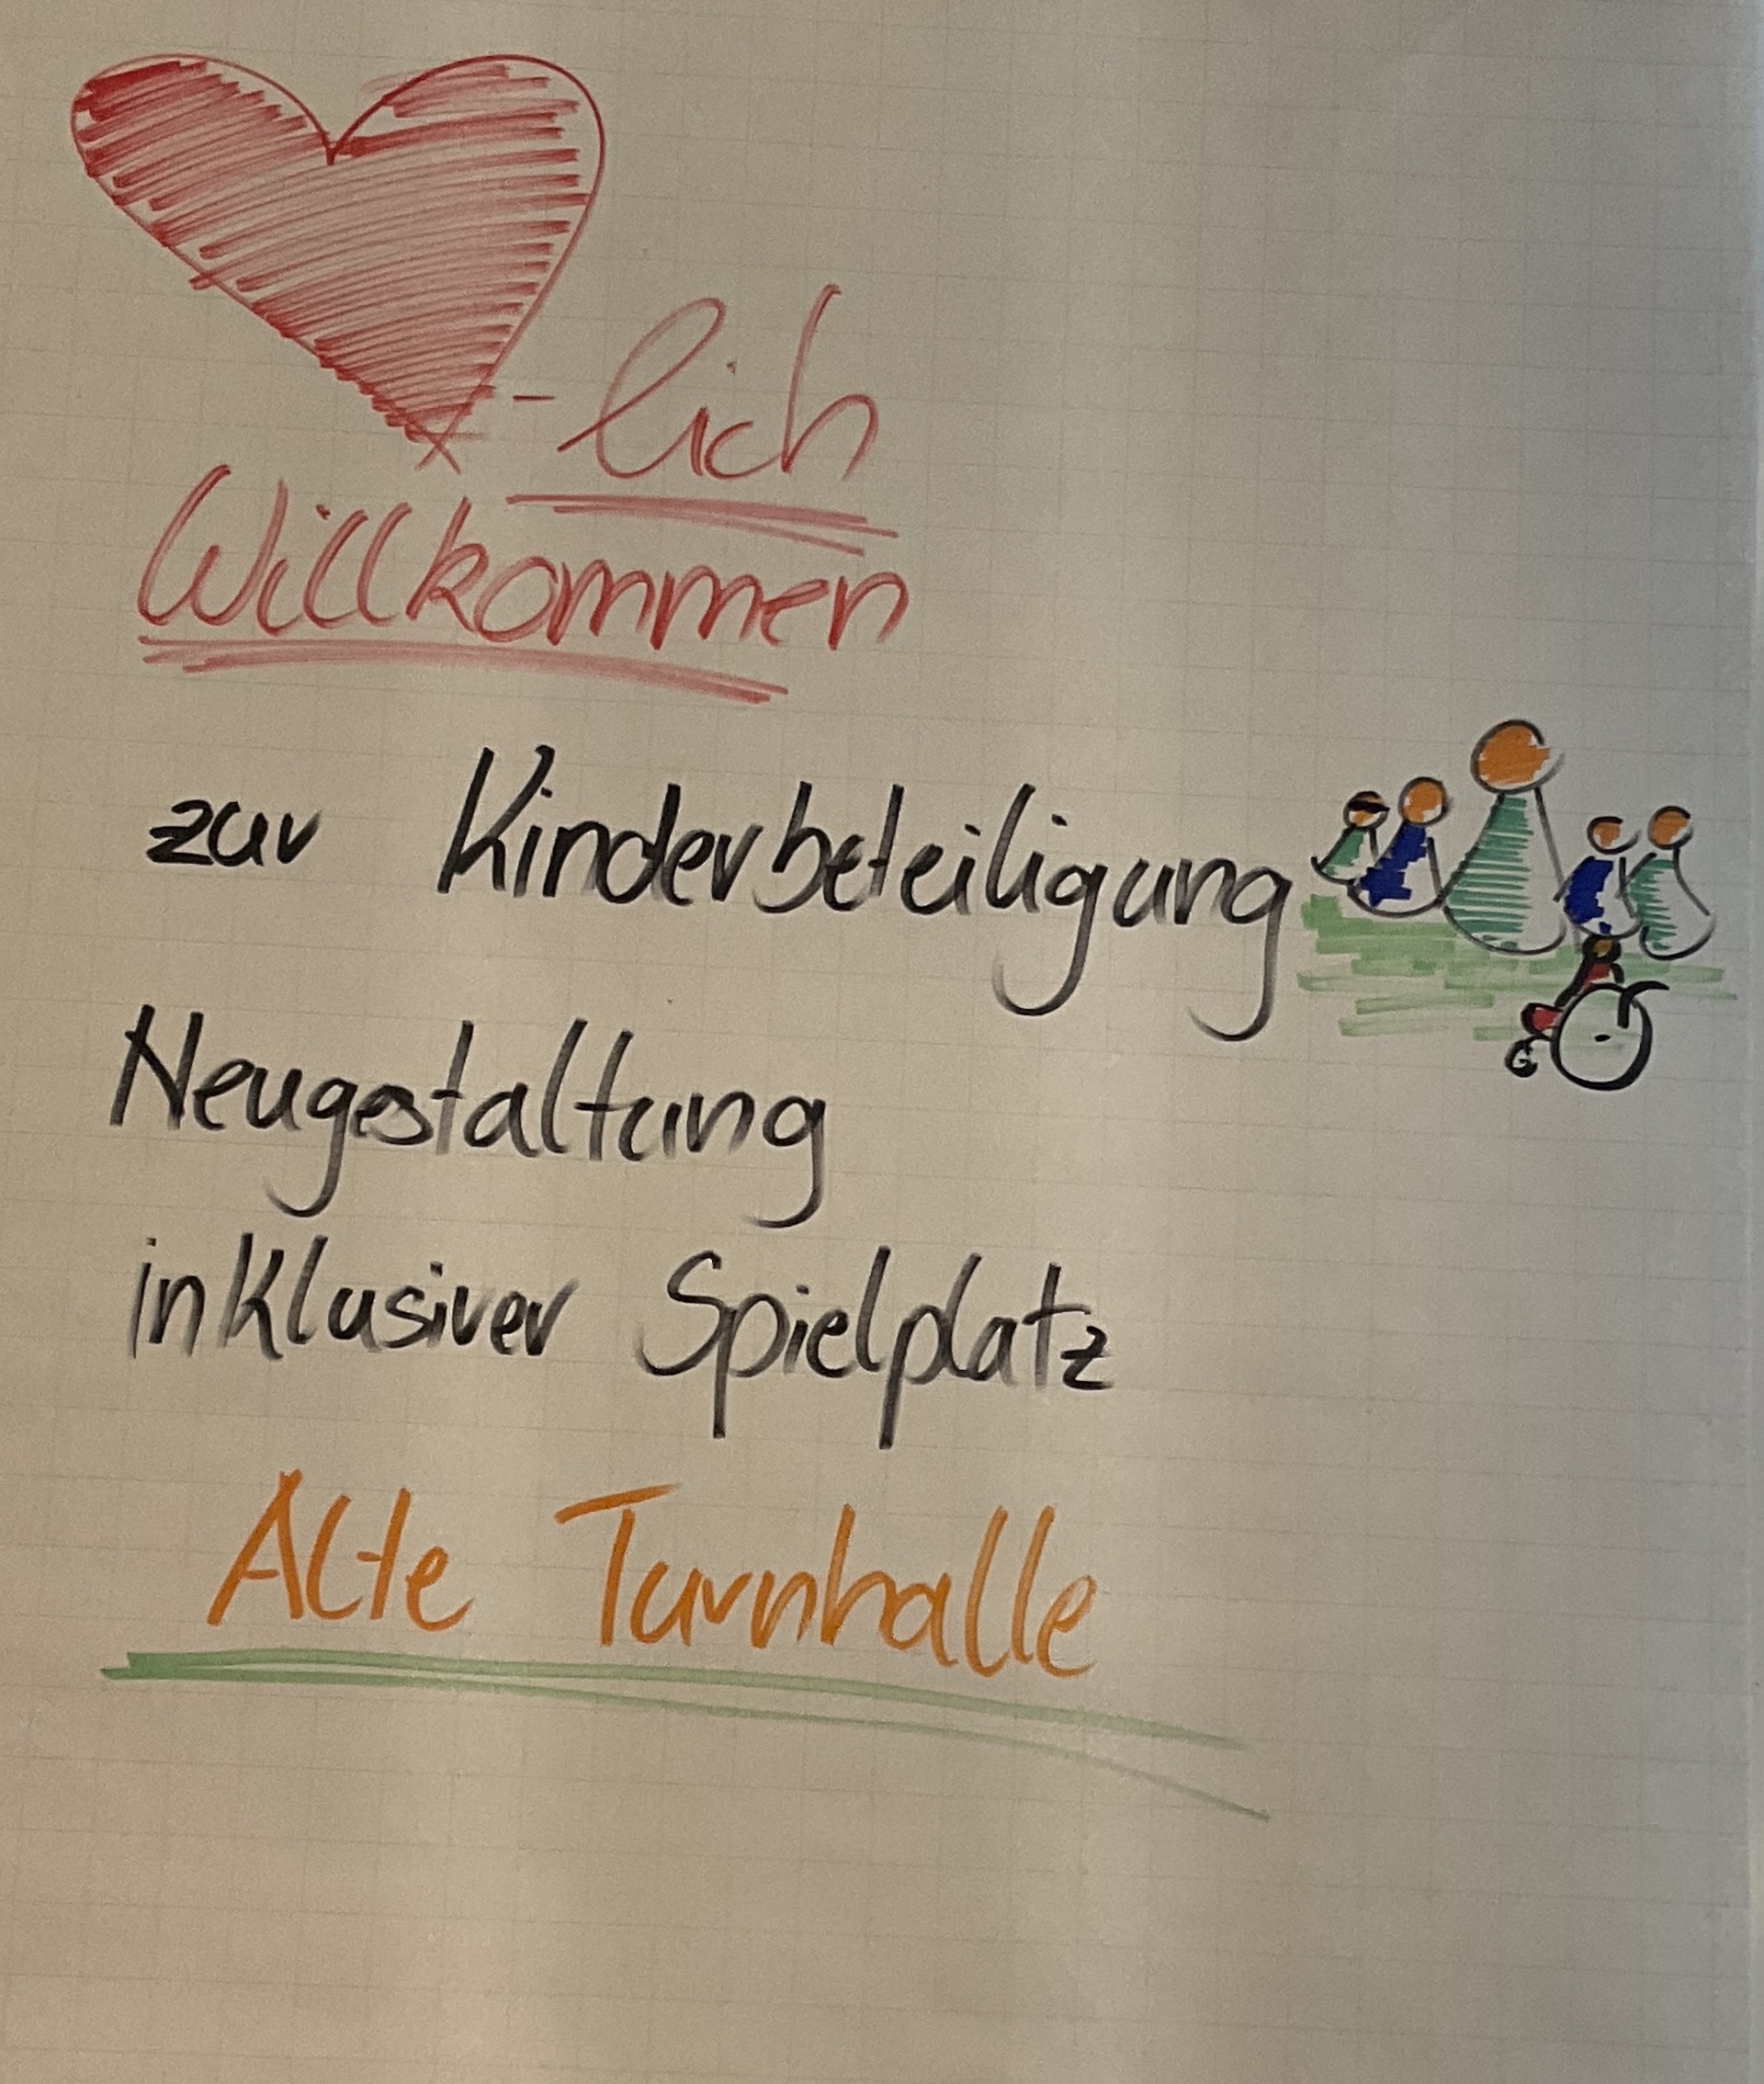 -lich
Willkommen
zur Kinderbeteiligung
Neugestaltung
inklusiver Spielplatz
Alte Turnhalle